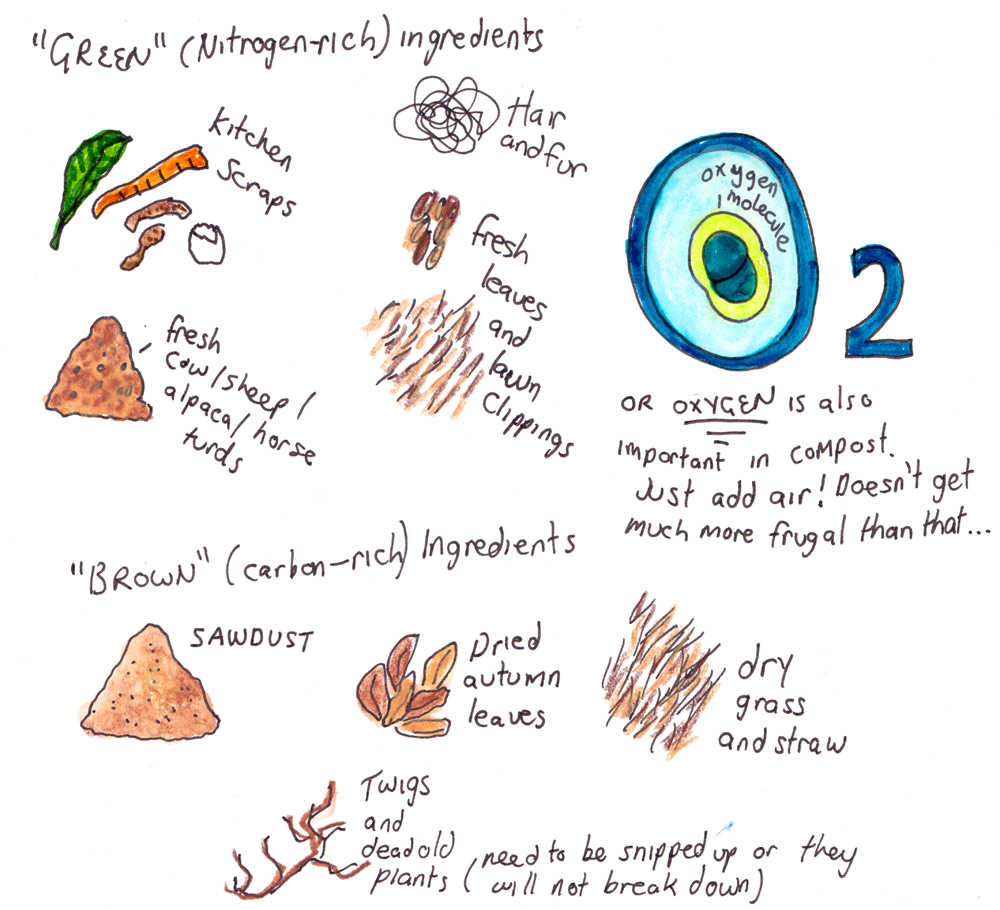 "GREEN" (Nitrogen-rich) ingredients
Kitchen
Scraps
Hair
and fur
fresh
leaves
and
lawn
clippings
fresh
cow/sheep/
alpaca/horse
turds
oxygen
molecule
2
OR OXYGEN is also
important in compost.
Just add air! Doesn't get
much more frugal than that...
"BROWN" (carbon-rich) Ingredients
SAWDUST
Dried
autumn
leaves
dry
grass
and straw
Twigs
and
dead old
plants (need to be snipped up or they
will not break down)